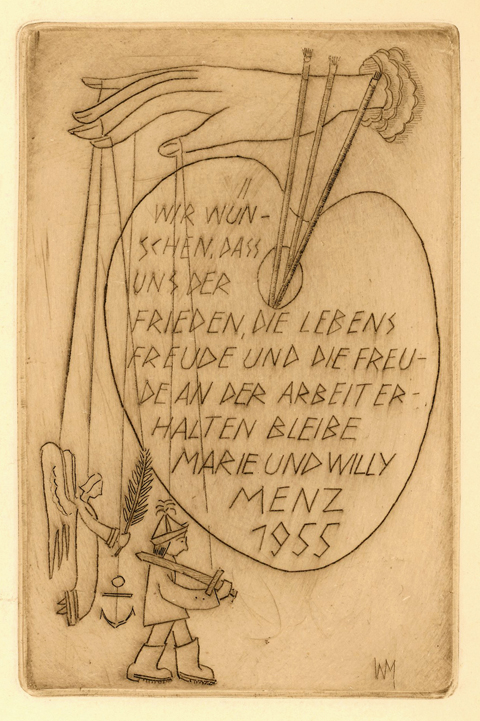 WIR WÜN-
SCHEN, DASS
UNS DER
FRIEDEN, DIE LEBENS
FREUDE UND DIE FREU-
DE AN DER ARBEIT ER-
HALTEN BLEIBE
MARIE UND WILLY
MENZ
1955
WM